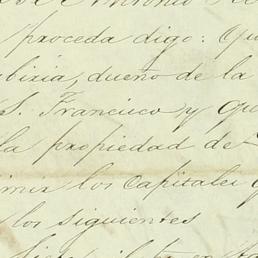 Antonio
proceda digo: Que
dueño de la
S. Francisco y que
la propiedad de
los capitales
los siguientes